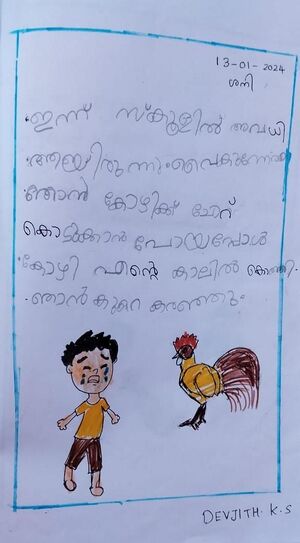 13-01-2024
ശനി
ഇന്ന് സ്കൂളിൽ അവധി
ആയിരുന്നു. വൈകുന്നേരം
ഞാൻ കോഴിക്ക് ചോറ്
കൊടുക്കാൻ പോയപ്പോൾ
കോഴി എന്റെ കാലിൽ കൊത്തി.
ഞാൻ കുറെ കരഞ്ഞു.
DEVJITH. K.S